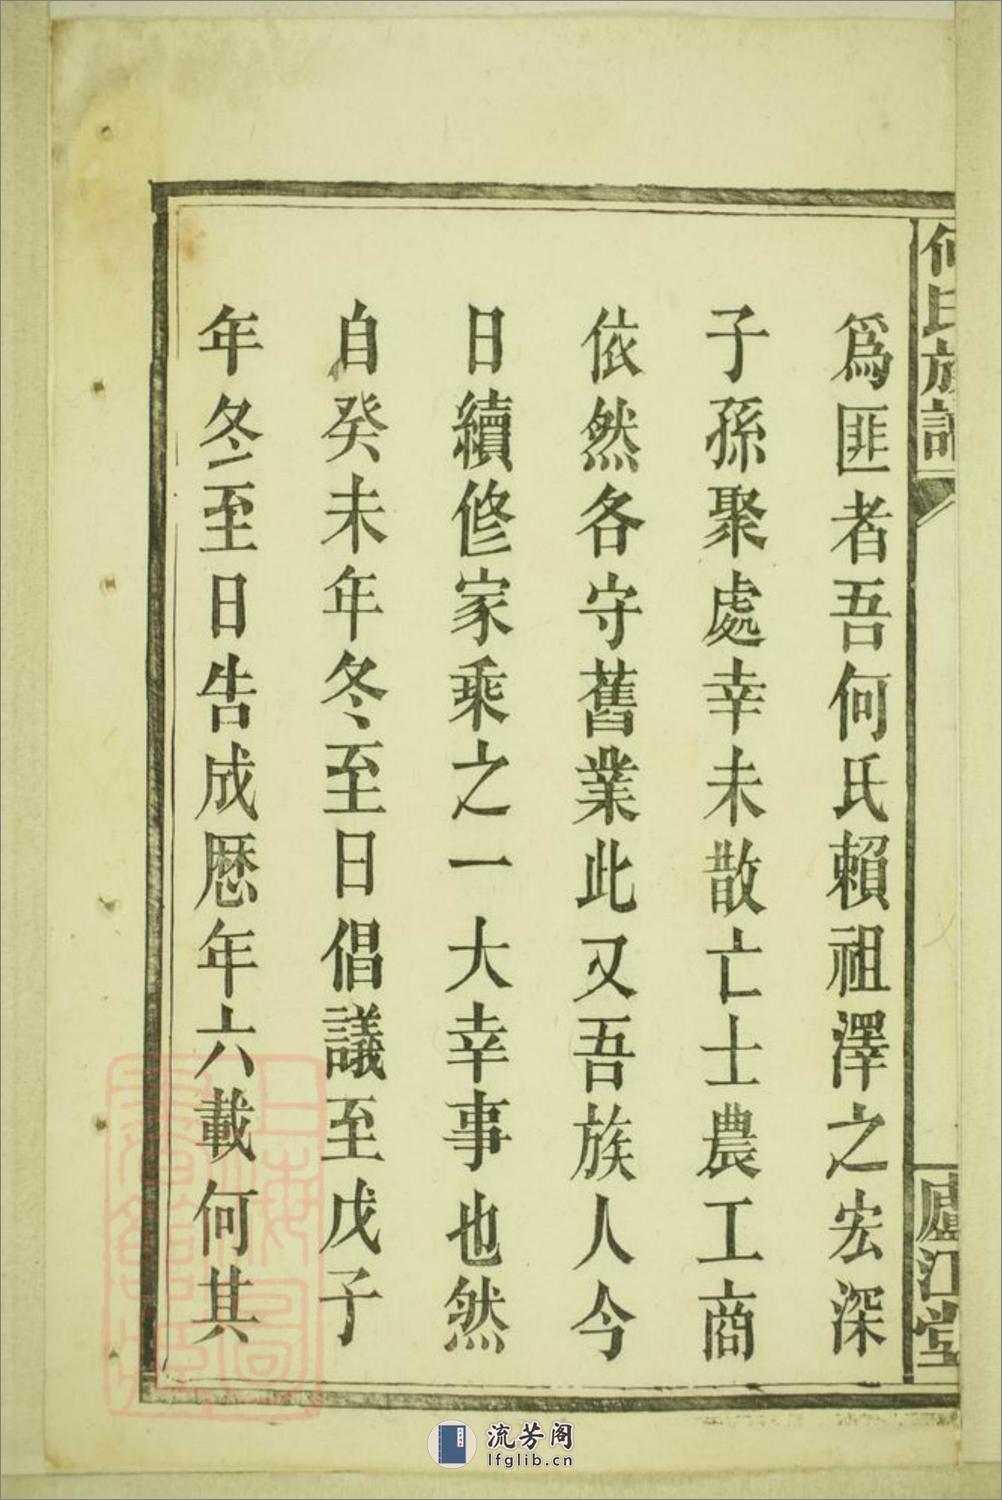 何氏族譜
廬江堂
爲匪者吾何氏賴祖澤之宏深
子孫聚處幸未散亡士農工商
依然各守舊業此又吾族人今
日續修家乘之一大幸事也然
自癸未年冬至日倡議至戊子
年冬至日告成歷年六載何其
流芳阁
lfglib.cn